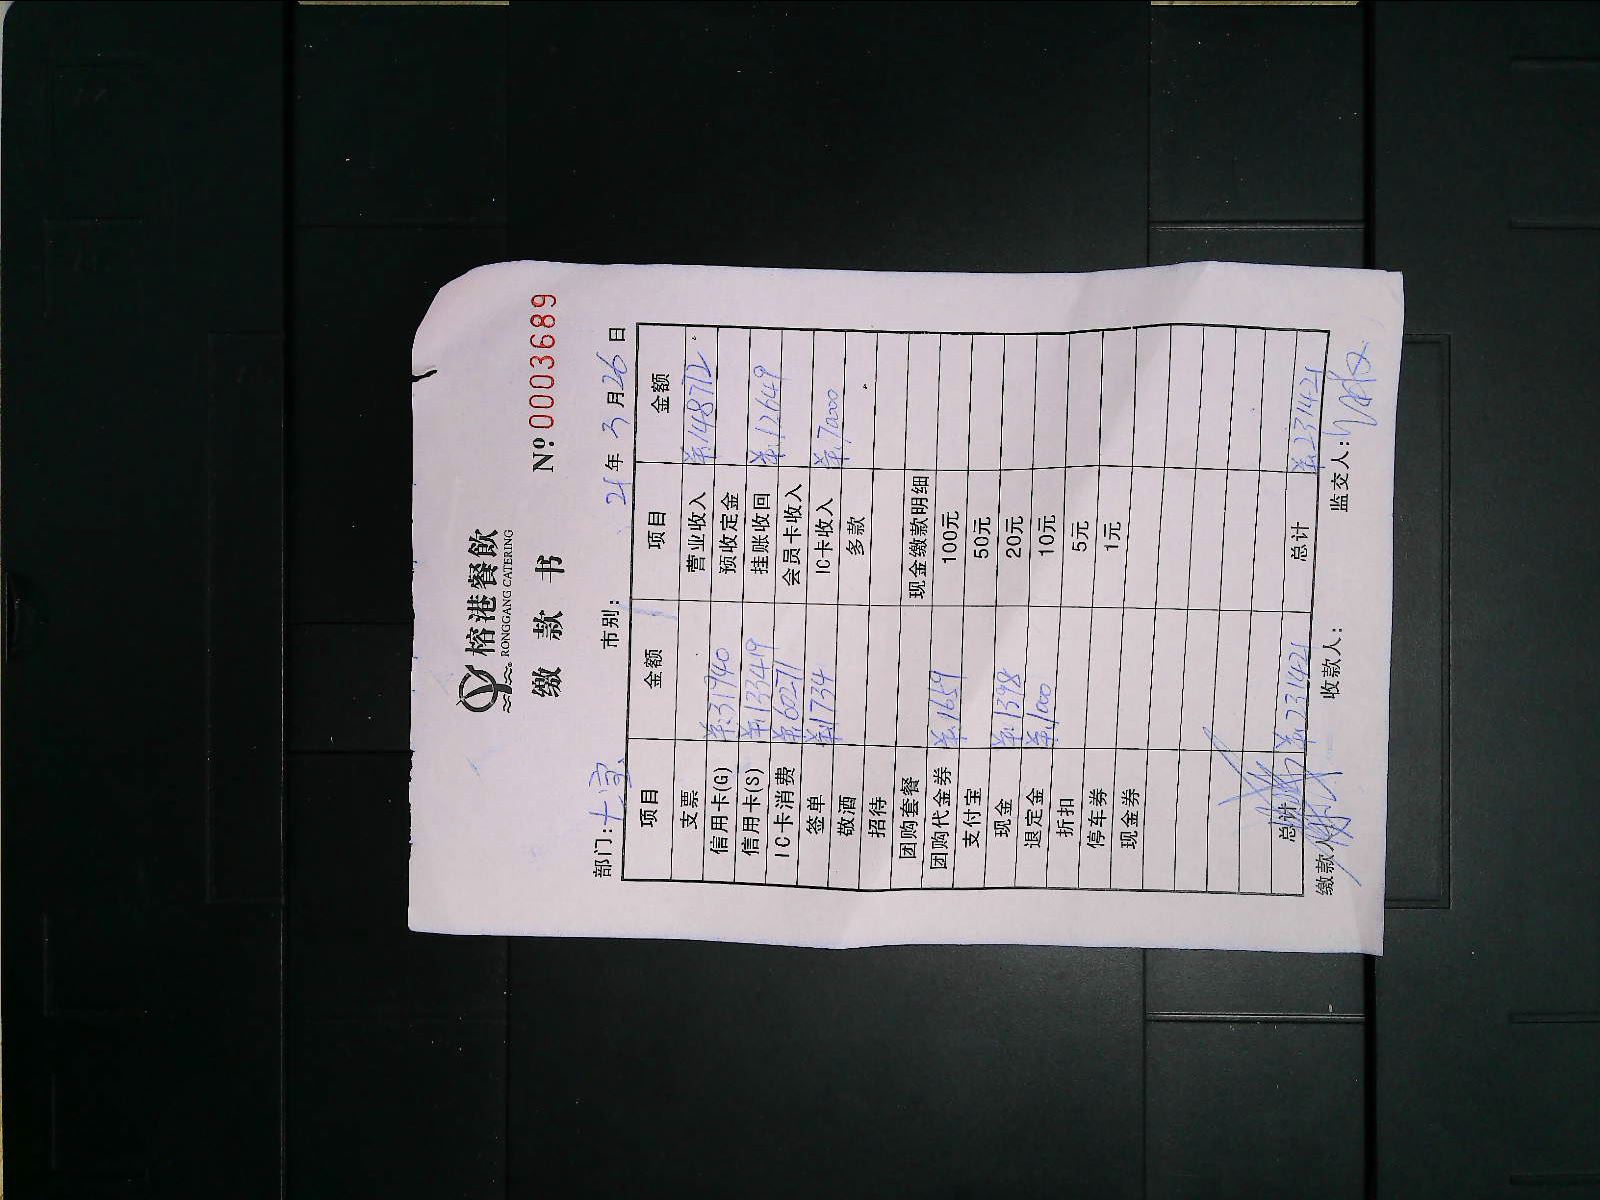 榕港餐飲
RONGGANG CATERING
缴 款 书 №0003689
部门: 市别: 21年3月26日
项目 金额 项目 金额
支票 营业收入 ¥:148772
信用卡(G) ¥:31940 预收定金
信用卡(S) ¥:133419 挂账收回 ¥:12649
IC卡消费 ¥:60271 会员卡收入
签单 ¥:1734 IC卡收入 ¥:70000
敬酒 多款
招待
团购套餐 现金缴款明细
团购代金券 ¥:1659 100元
支付宝 50元
现金 ¥:1398 20元
退定金 ¥:1000 10元
折扣 5元
停车券 1元
现金券
总计 ¥:231421 总计 ¥:231421
缴款人: 收款人: 监交人: